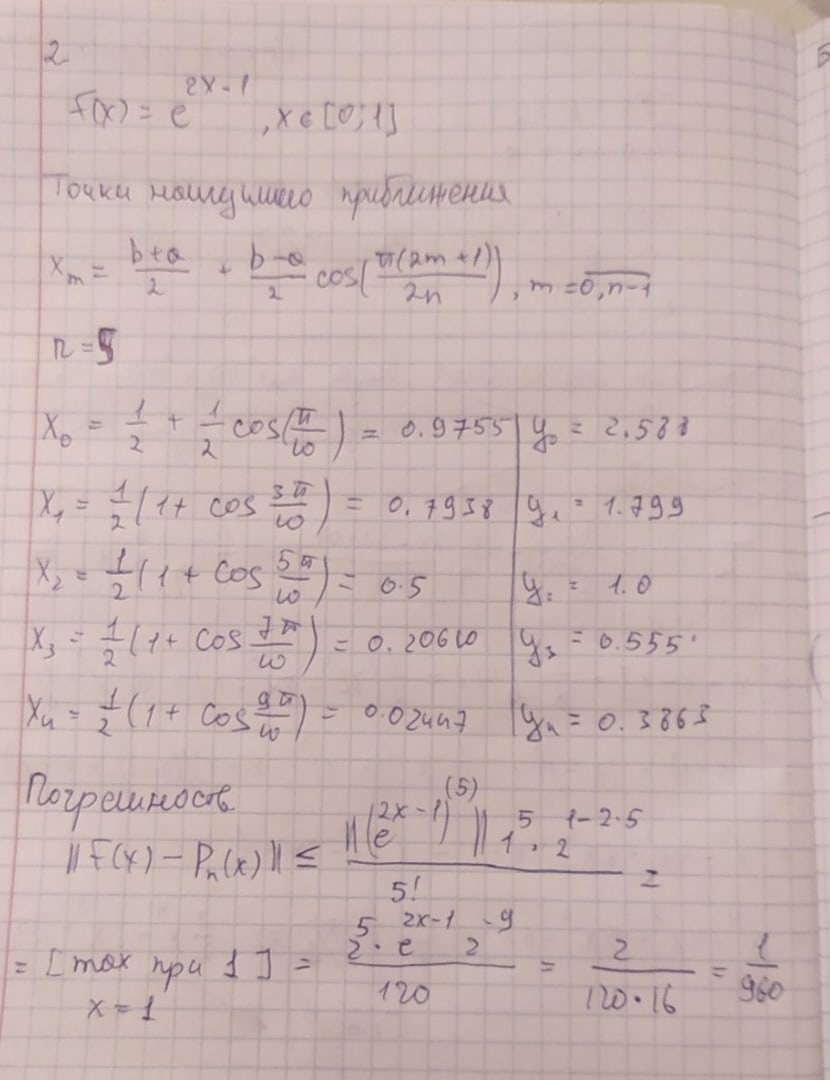 2
F(x) = e^{2x-1}, x ∈ [0; 1]
Точки наилучшего приближения
x_m = \frac{b+a}{2} + \frac{b-a}{2} cos(\frac{π(2m+1)}{2n}), m = \overline{0, n-1}
n = 5
x_0 = \frac{1}{2} + \frac{1}{2} cos(\frac{π}{10}) = 0.9755 | y_0 = 2.588
x_1 = \frac{1}{2}(1 + cos \frac{3π}{10}) = 0.7938 | y_1 = 1.799
x_2 = \frac{1}{2}(1 + cos \frac{5π}{10}) = 0.5 | y_2 = 1.0
x_3 = \frac{1}{2}(1 + cos \frac{7π}{10}) = 0.20610 | y_3 = 0.555
x_4 = \frac{1}{2}(1 + cos \frac{9π}{10}) = 0.02447 | y_4 = 0.3863
Погрешность
||F(x) - P_n(x)|| ≤ \frac{||(e^{2x-1})^{(5)}|| 1^5 · 2^{1-2·5}}{5!} =
= [max при 1] = \frac{2^5 · e^{2x-1} 2^{-9}}{120} = \frac{2}{120·16} = \frac{1}{960}
x = 1